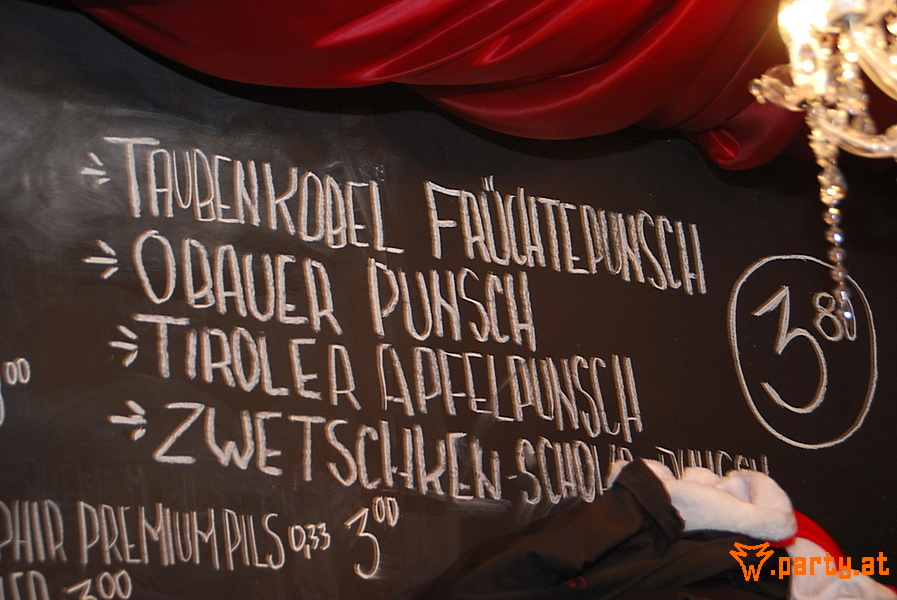 TAUBENKOBEL FRÜCHTEPUNSCH
OBAUER PUNSCH
3 80
TIROLER APFELPUNSCH
00
ZWETSCHKEN-
PREMIUM PILS 0,33 3 00
3 00
.party.at